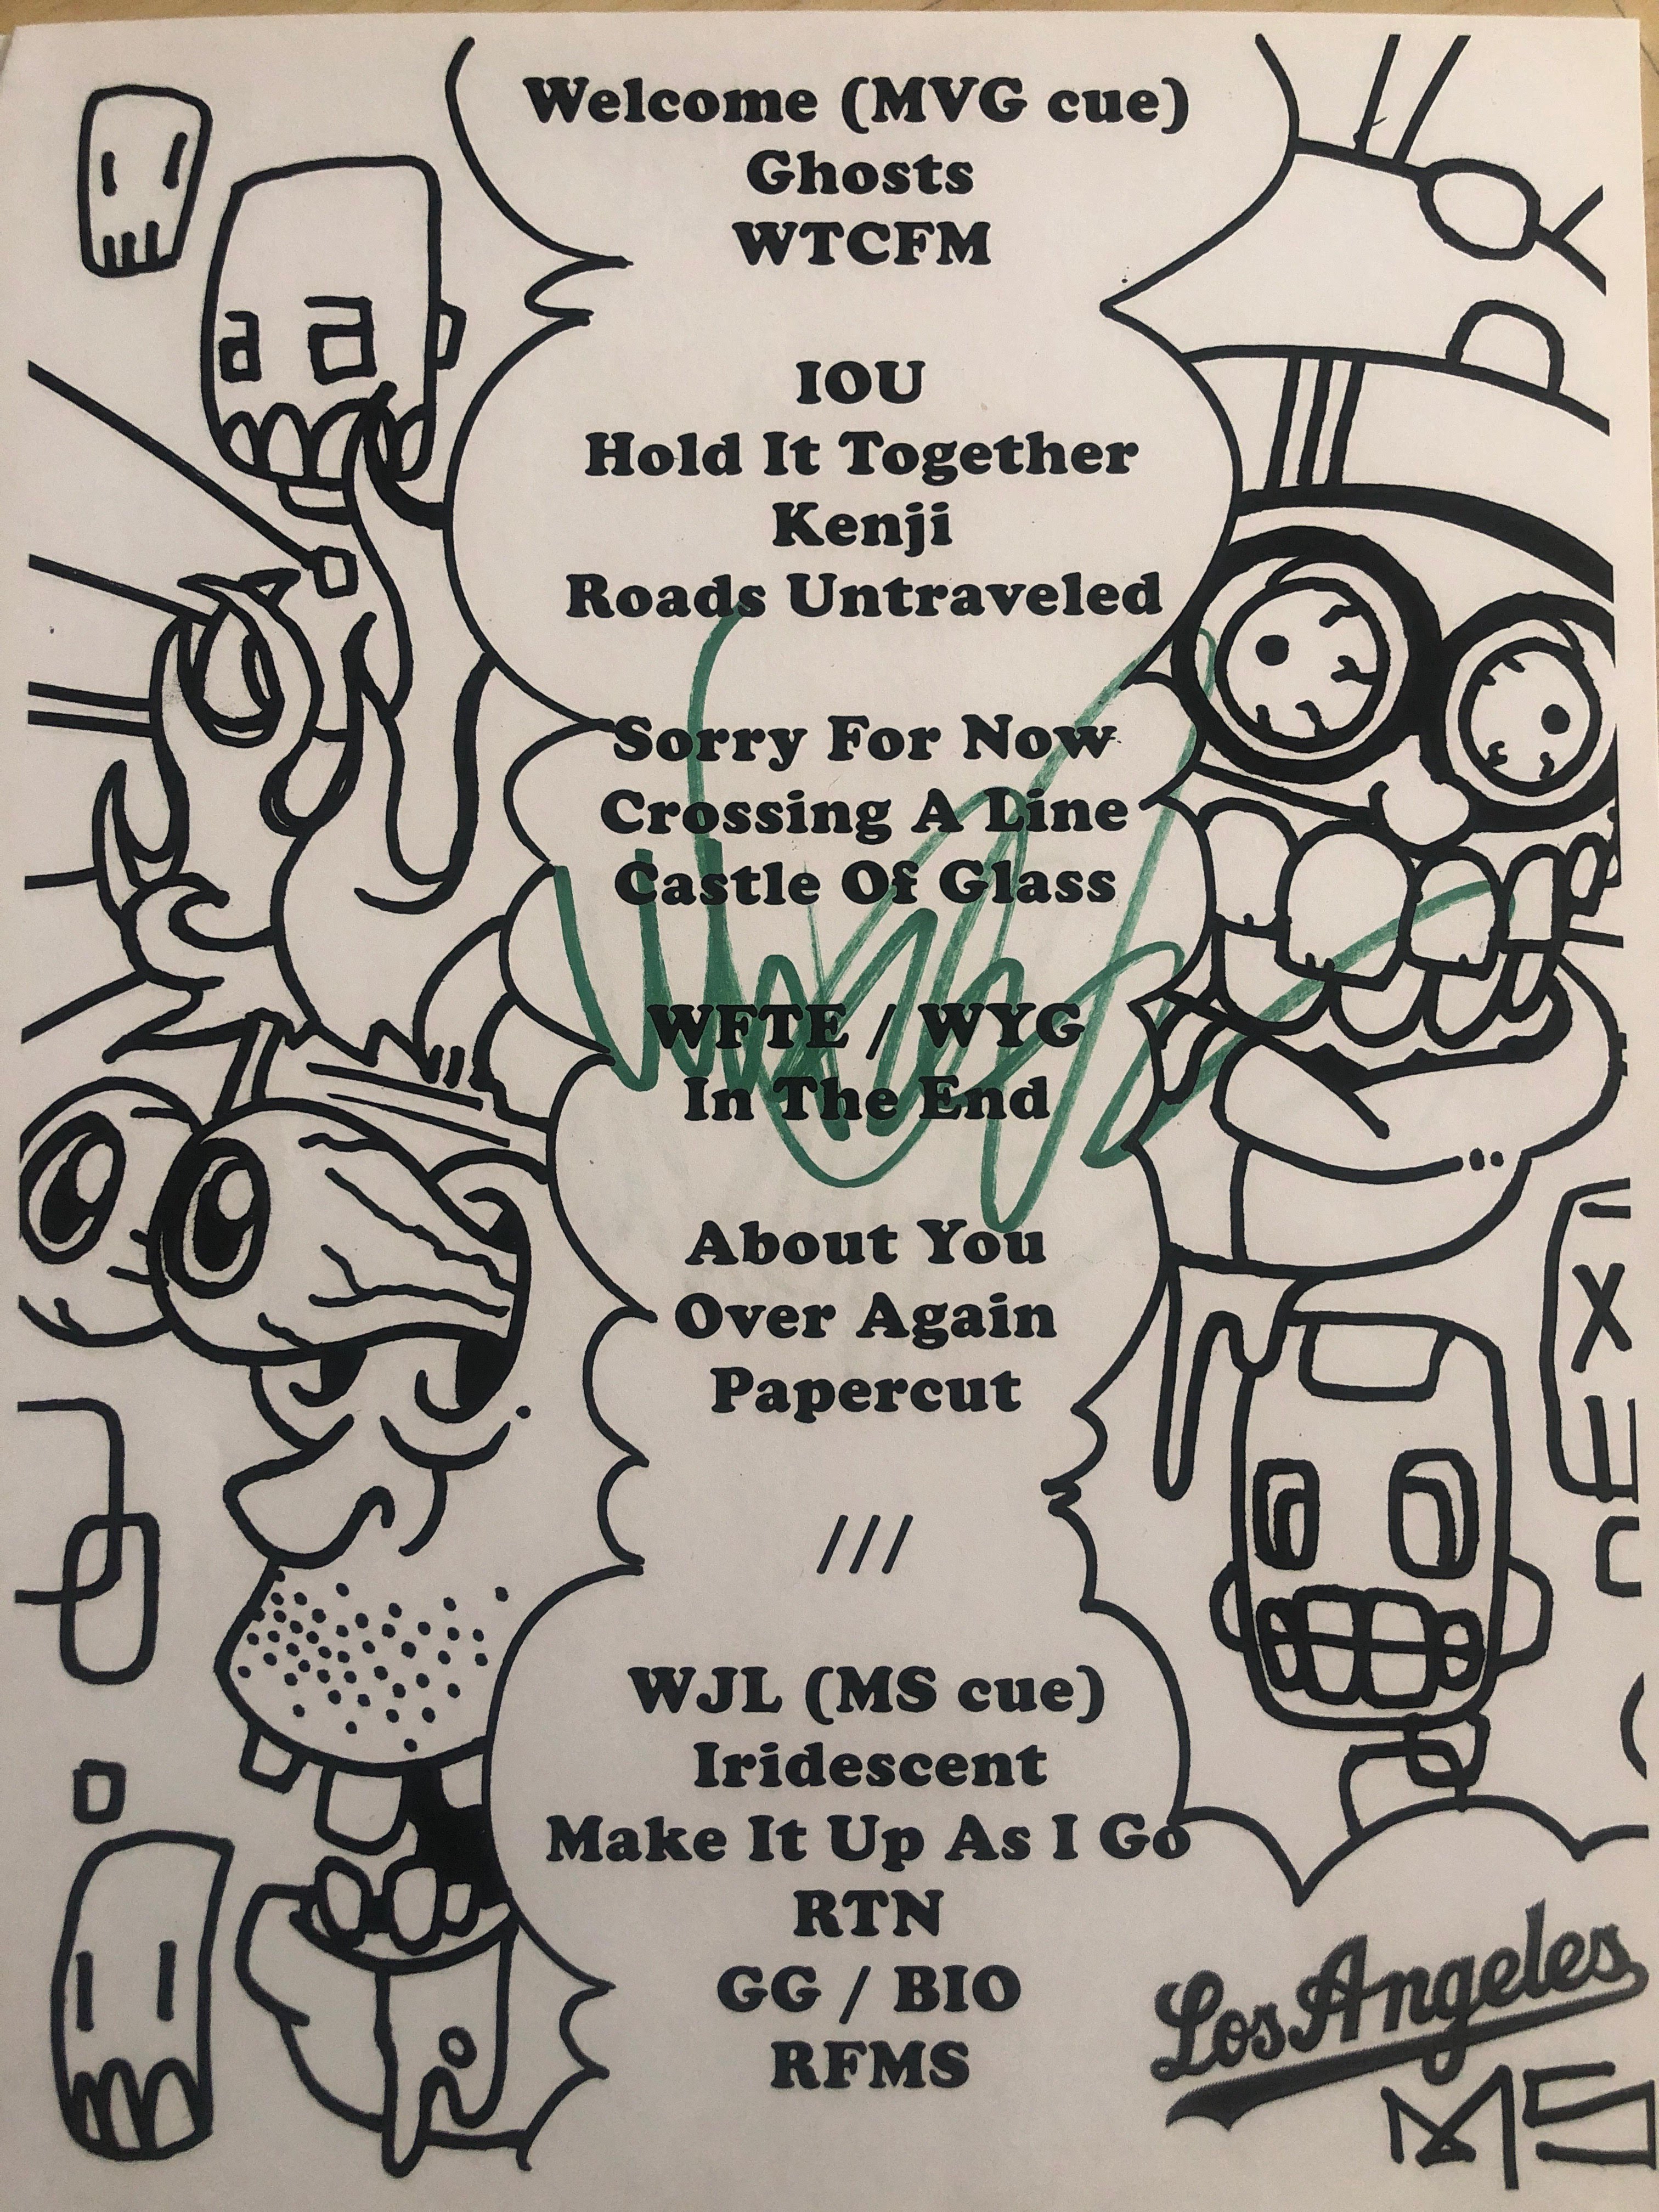 Welcome (MVG cue)
Ghosts
WTCFM
IOU
Hold It Together
Kenji
Roads Untraveled
Sorry For Now
Crossing A Line
Castle Of Glass
WFTE / WYG
In The End
About You
Over Again
Papercut
///
WJL (MS cue)
Iridescent
Make It Up As I Go
RTN
GG / BIO
RFMS
Los Angeles
MS